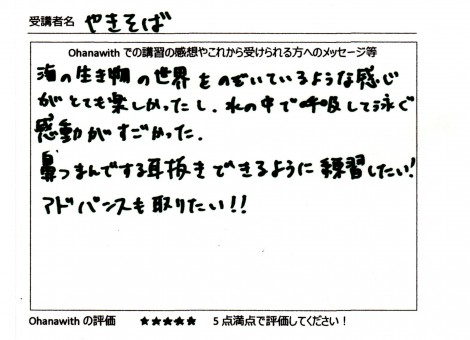 受講者名 やきそば
Ohanawith での講習の感想やこれから受けられる方へのメッセージ等
海の生き物の世界をのぞいているような感じ
がとても楽しかったし、水の中で呼吸して泳ぐ
感動がすごかった。
鼻つまんでする耳抜きできるように練習したい!
アドバンスも取りたい!!
Ohanawith の評価 ★★★★★ 5 点満点で評価してください!